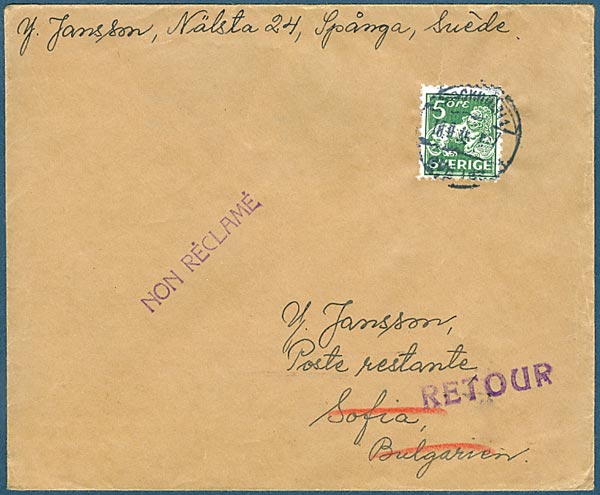 Y. Jansson, Nälsta 24, Spånga, Suède.
5 ÖRE
SVERIGE
NON RÉCLAMÉ
Y. Jansson,
Poste restante
RETOUR
Sofia,
Bulgarien.